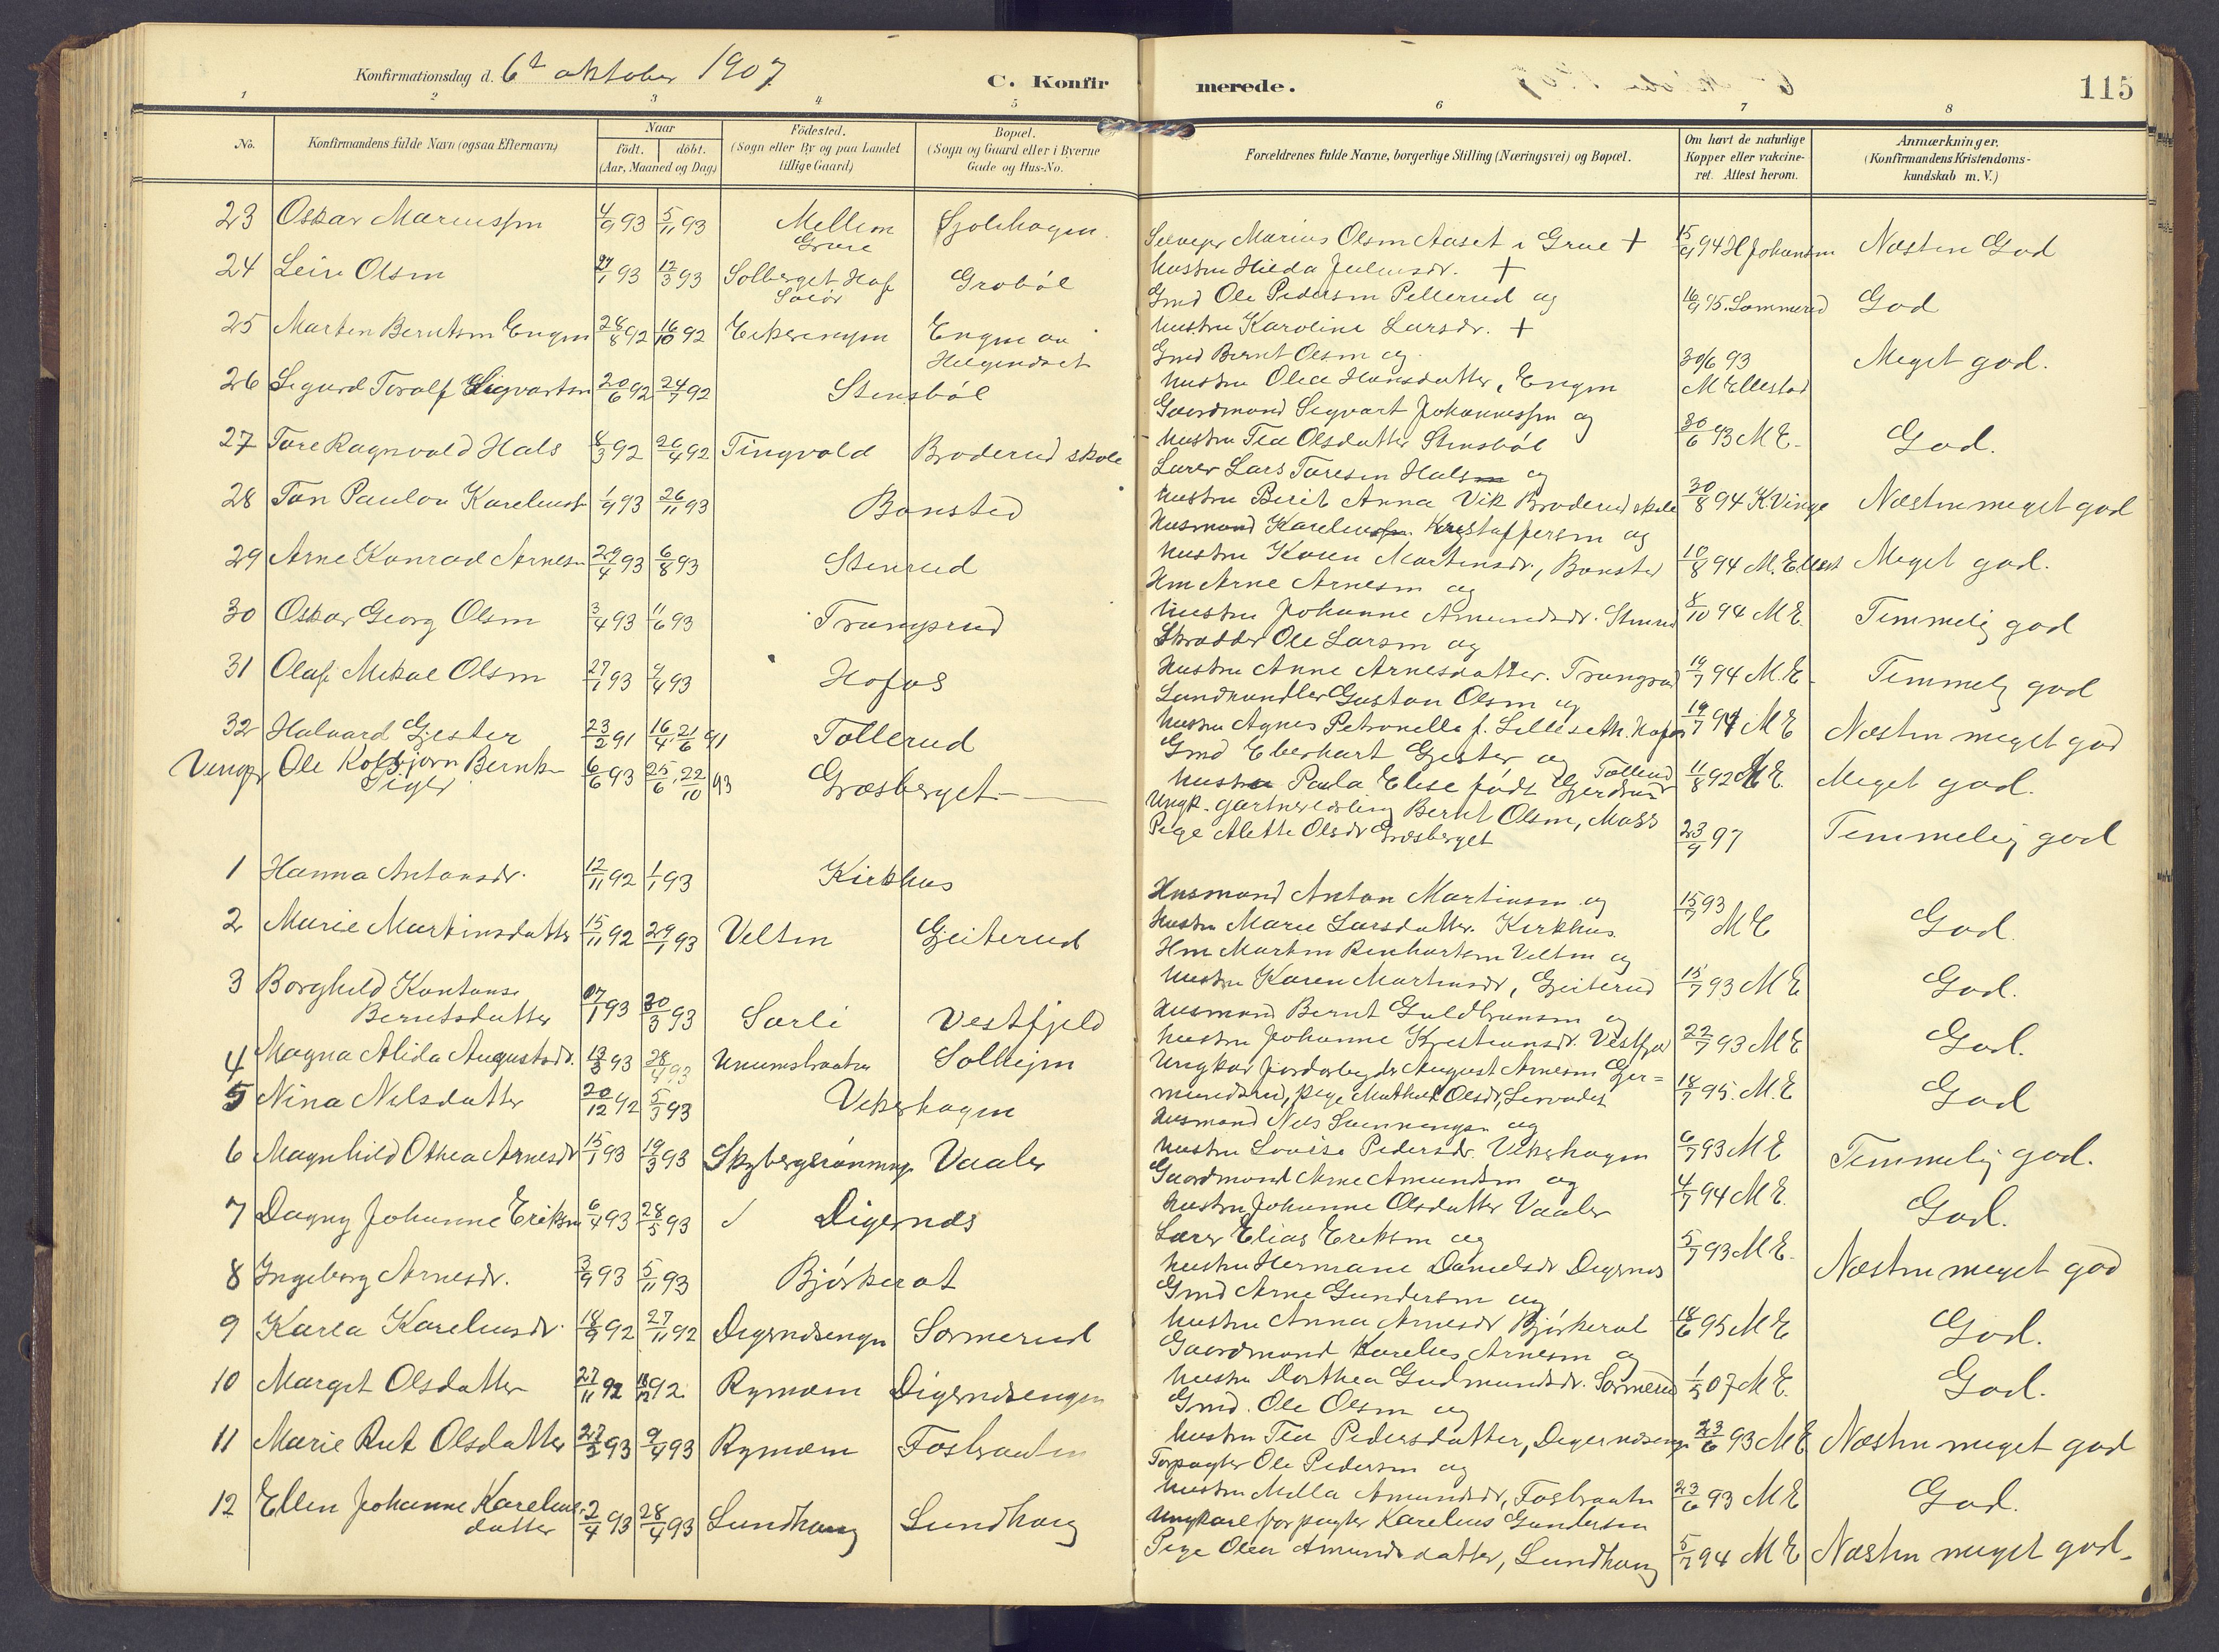 Konfirmationsdag d. 6t oktober 1907.
C. Konfirmerede.
115
1 2 3 4 5 6 7 8
No.
Konfirmandens fulde Navn (ogsaa Efternavn)
Naar
født. døbt.
(Aar, Maaned og Dag)
Födested.
(Sogn eller By og paa Landet
tillige Gaard)
Bopæl.
(Sogn og Gaard eller i Byerne
Gade og Hus-No.
Forældrenes fulde Navne, borgerlige Stilling (Næringsvei) og Bopæl.
Om havt de naturlige
Kopper eller vakcine-
ret. Attest herom.
Anmærkninger.
(Konfirmandens Kristendoms-
kundskab m. V.)
23 Oskar Mariussen 4/9 93 5/11 93 Mellem
Grue
Selveier Marius Olsen Aaset i Grue + 15/9 94 H Johansen Næsten God
Hustru Hilda Juliusdr. +
24 Olsen 12/3 93 Solberget Hof
Solør
Grobøl
Gmd Ole Pedersen Pellerud og 16/9 95. Sommerud God
Hustru Karoline Larsdr. +
25 Marten Berntsen Engen 28/8 92 16/10 92 Engen av
Gmd Bernt Olsen og 30/6 93 Meget god.
Hustru Olea Hansdatter, Engen M Ellestad
26 Sigurd Toralf Sigvartsen 20/6 92 24/7 92 Stensbøl
Gaardmand Sigvart Johannessen og 30/6 93 M E. God.
Hustru Tea Olsdatter Stensbøl
27 Tore Ragnvald Hals 8/3 92 26/4 92 Tingvold Broderud skole
Lærer Lars Toresen Hals og 30/8 94 K. Vinge Næsten meget god
Hustru Berit Anna Vik Broderud skole
28 Paulon Kareliusen 1/9 93 26/11 93 Bansted
Husmand Karelius Kristoffersen og 10/8 94 M. Ellest Meget god.
Hustru Karen Martinsdr., Bansted
29 Arne Konrad Arnesen 29/4 93 6/8 93 Stenrud
Hm Arne Arnesen og 8/10 94 M E. Temmelig god
Hustru Johanne Amundsdr. Stenrud
30 Oskar Georg Olsen 3/4 93 11/6 93 Trangsrud
Skrædder Ole Larsen og 19/7 94 M. E. Temmelig god
Hustru Anne Arnesdatter. Trangsrud
31 Olaf Mikal Olsen 27/1 93 9/4 93 Hofos
Landhandler Gustav Olsen og 19/7 94 M E Næsten meget god
Hustru Agnes Petronelle f. Lilleseth. Hofos
32 Halvard Gjester 23/2 91 16/4, 21/6 91 Tollerud
Gmd Eberhart Gjester og Tollerud 11/8 92 M E. Meget god.
Hustru Paula Elise født Gjerdrum
Ole Kolbjørn Bernt- 6/6 93 25/6, 22/10 93 Græsberget
Ungk. gartnerlærling Bernt Olsen, Moss 23/9 97 Temmelig god
Pige Alette Olsdr Græsberget
1 Hanna Antonsdr. 12/11 92 1/1 93 Kirkhus
Husmand Anton Martinsen og 15/7 93 God
Hustru Marie Larsdatter. Kirkhus M E
2 Marie Martinsdatter 15/11 92 29/1 93 Velten Gjeiterud
Hm Martin Renhartsen Velten og 15/7 93 M E God.
Hustru Karen Martinsdr, Gjeiterud
3 Borghild Konstanse
Berntsdatter 93 30/3 93 Sorli Vestfjeld
Husmand Bernt Guldbransen og 22/7 93 M E God.
Hustru Johanne Kristiansdr. Vestfjeld
4 Magna Alida Augustsdr. 13/3 93 28/4 93 Solheim
Ungkar jordarbeider August Arnesen Ger- 18/7 95. M. E God
mundsrud, pige Mathea Olsdr,
5 Nina Nilsdatter 20/12 92 5/3 93 Vekerhagen
Husmand Nils Svenningsen og 6/7 93 M E Temmelig god.
Hustru Lovise Pedersdr. Vekerhagen
6 Magnhild Othea Arnesdr 15/1 93 19/3 93 Skybergsrønningen Vaaler
Gaardmand Arne Amundsen og 4/7 94 M E. God.
Hustru Johanne Olsdatter Vaaler
7 Dagny Johanne Eriksen 6/4 93 28/5 93 Digernes
Lærer Elias Eriksen og 5/7 93 M E. Næsten meget god
Hustru Hermane Danielsdr Digernes
8 Ingeborg Arnesdr. 3/9 93 5/11 93 Bjørkerot
Gmd Arne Gundersen og 18/6 95 M E God.
Hustru Anna Arnesdr Bjørkerot
9 Karla Kareliusdr. 18/9 92 27/11 92 Digernesengen Sormerud
Gaardmand Karelius Arnesen og 1/5 07 M E. God.
Hustru Dorthea Gudmundsdr. Sormerud
10 Margit Olsdatter 27/11 92 18/12 92 Rymoen Digernesengen
Gmd. Ole Olsen og 23/6 93 M E Næsten meget god
Hustru Tea Pedersdatter, Digernesengen
11 Marie Rut Olsdatter 93 9/4 93 Rymoen Fosbraaten
Forpagter Ole Pedersen og 23/6 93 M E God.
Hustru Milla Amundsdr, Fosbraaten
12 Ellen Johanne Karelius-
datter 2/4 93 28/4 93 Sundhaug Sundhaug
Ungkarl forpagter Karelius Gundersen 5/7 94 M E Næsten meget god.
Pige Olea Amundsdatter, Sundhaug